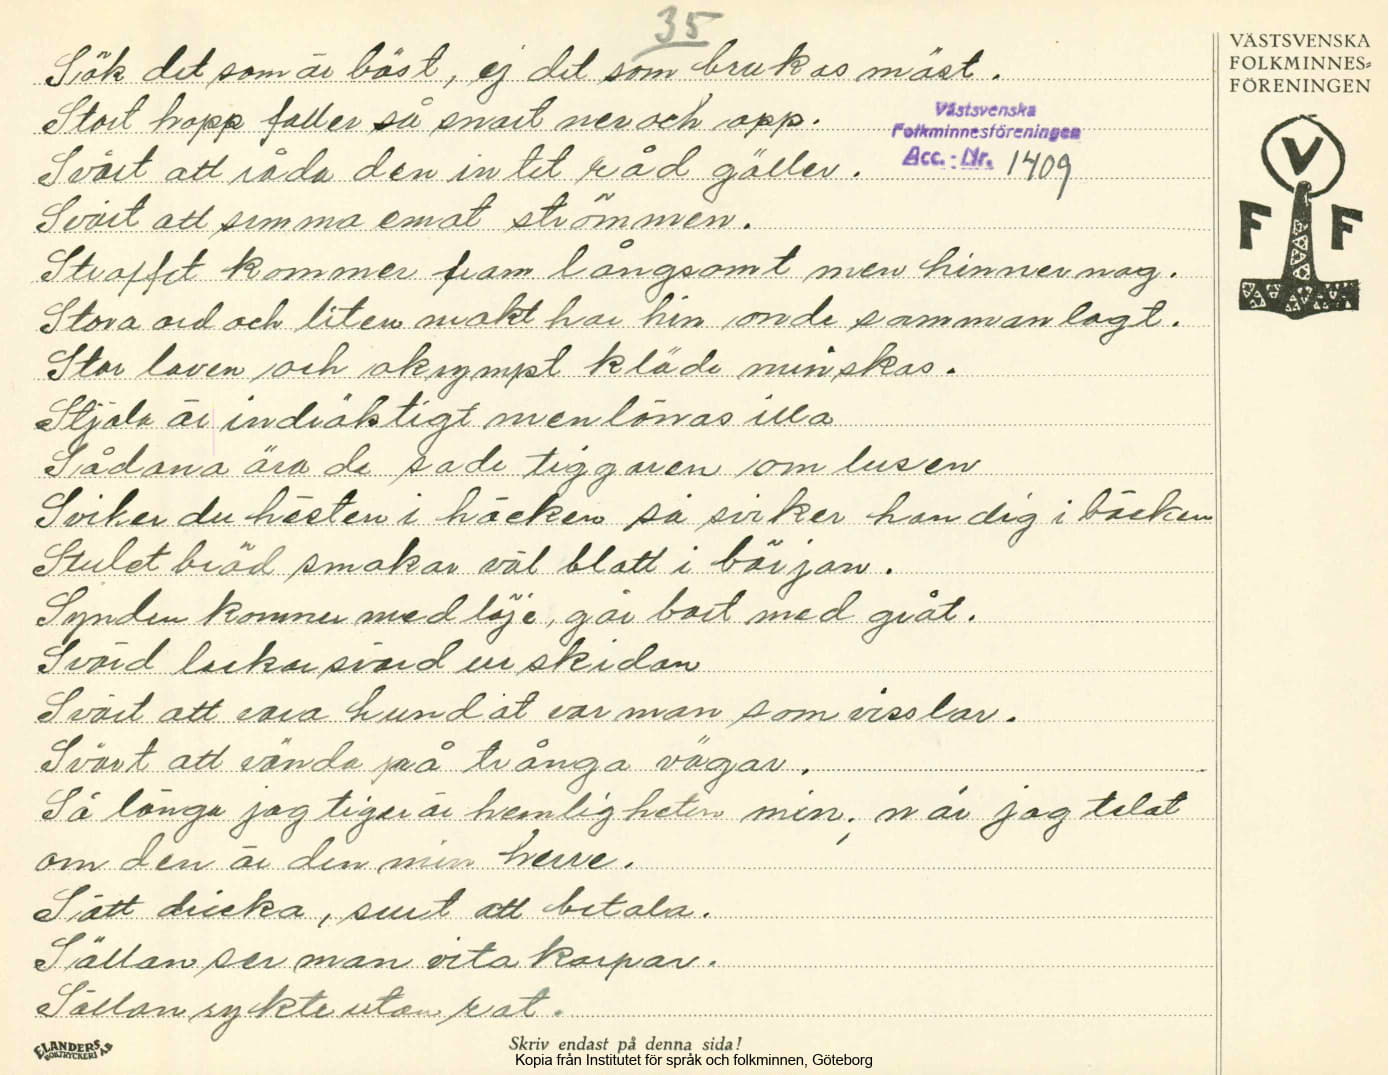 35
Sök det som är bäst, ej det som brukas mäst.
Stort hopp faller så snart ner och opp.
Svårt att råda den intet råd gäller.
Svårt att simma emot strömmen.
Straffet kommer fram långsamt men hinner nog.
Stora ord och liten makt har hin onde sammanlagt.
Stor loven och skrympt kläde minskas.
Stjäla är indräktigt men lönas illa
Sådana ära de sade tiggaren om lusen
Sviker du hästen i häcken så sviker han dig i bäcken
Stulet bröd smakar väl blott i början.
Synden kommer med löje, går bort med gråt.
Svärd lockar svärd ur skidan
Svårt att vara hund åt var man som visslar.
Svårt att vända på trånga vägar.
Så länge jag tiger är hemligheten min, när jag talat
om den är den min herre.
Sött dricka, surt att betala.
Sällan ser man vita korpar.
Sällan rykte utan rot.
Västsvenska
Folkminnesföreningen
Acc. - Nr. 1409
VÄSTSVENSKA
FOLKMINNES-
FÖRENINGEN
V
F F
ELANDERS
BOKTRYCKERI AB
Skriv endast på denna sida!
Kopia från Institutet för språk och folkminnen, Göteborg